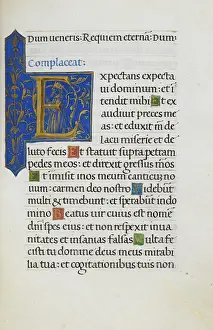 Dum veneris: Requiem eternā: Dum
Complaceat:
Expectans expecta
vi dominum: et i
tendit mihi Et ex
audivit preces me
as: et eduxit m̄ de
lacu miserie et de
luto fecis Et statuit supra petra
pedes meos: et direxit gressus meos
Et imisit inos meum canticum no
uum: carmen deo nostro Videbūt
multi & timebunt: et sperabunt indo
mino Beatus vir cuius est nomē
dn̄i spes eius: et non respexit inva
nitates et insanias falsas Multa fe
cisti tu domine deus meus mirabi
lia tua: et cogitationibus tuis non